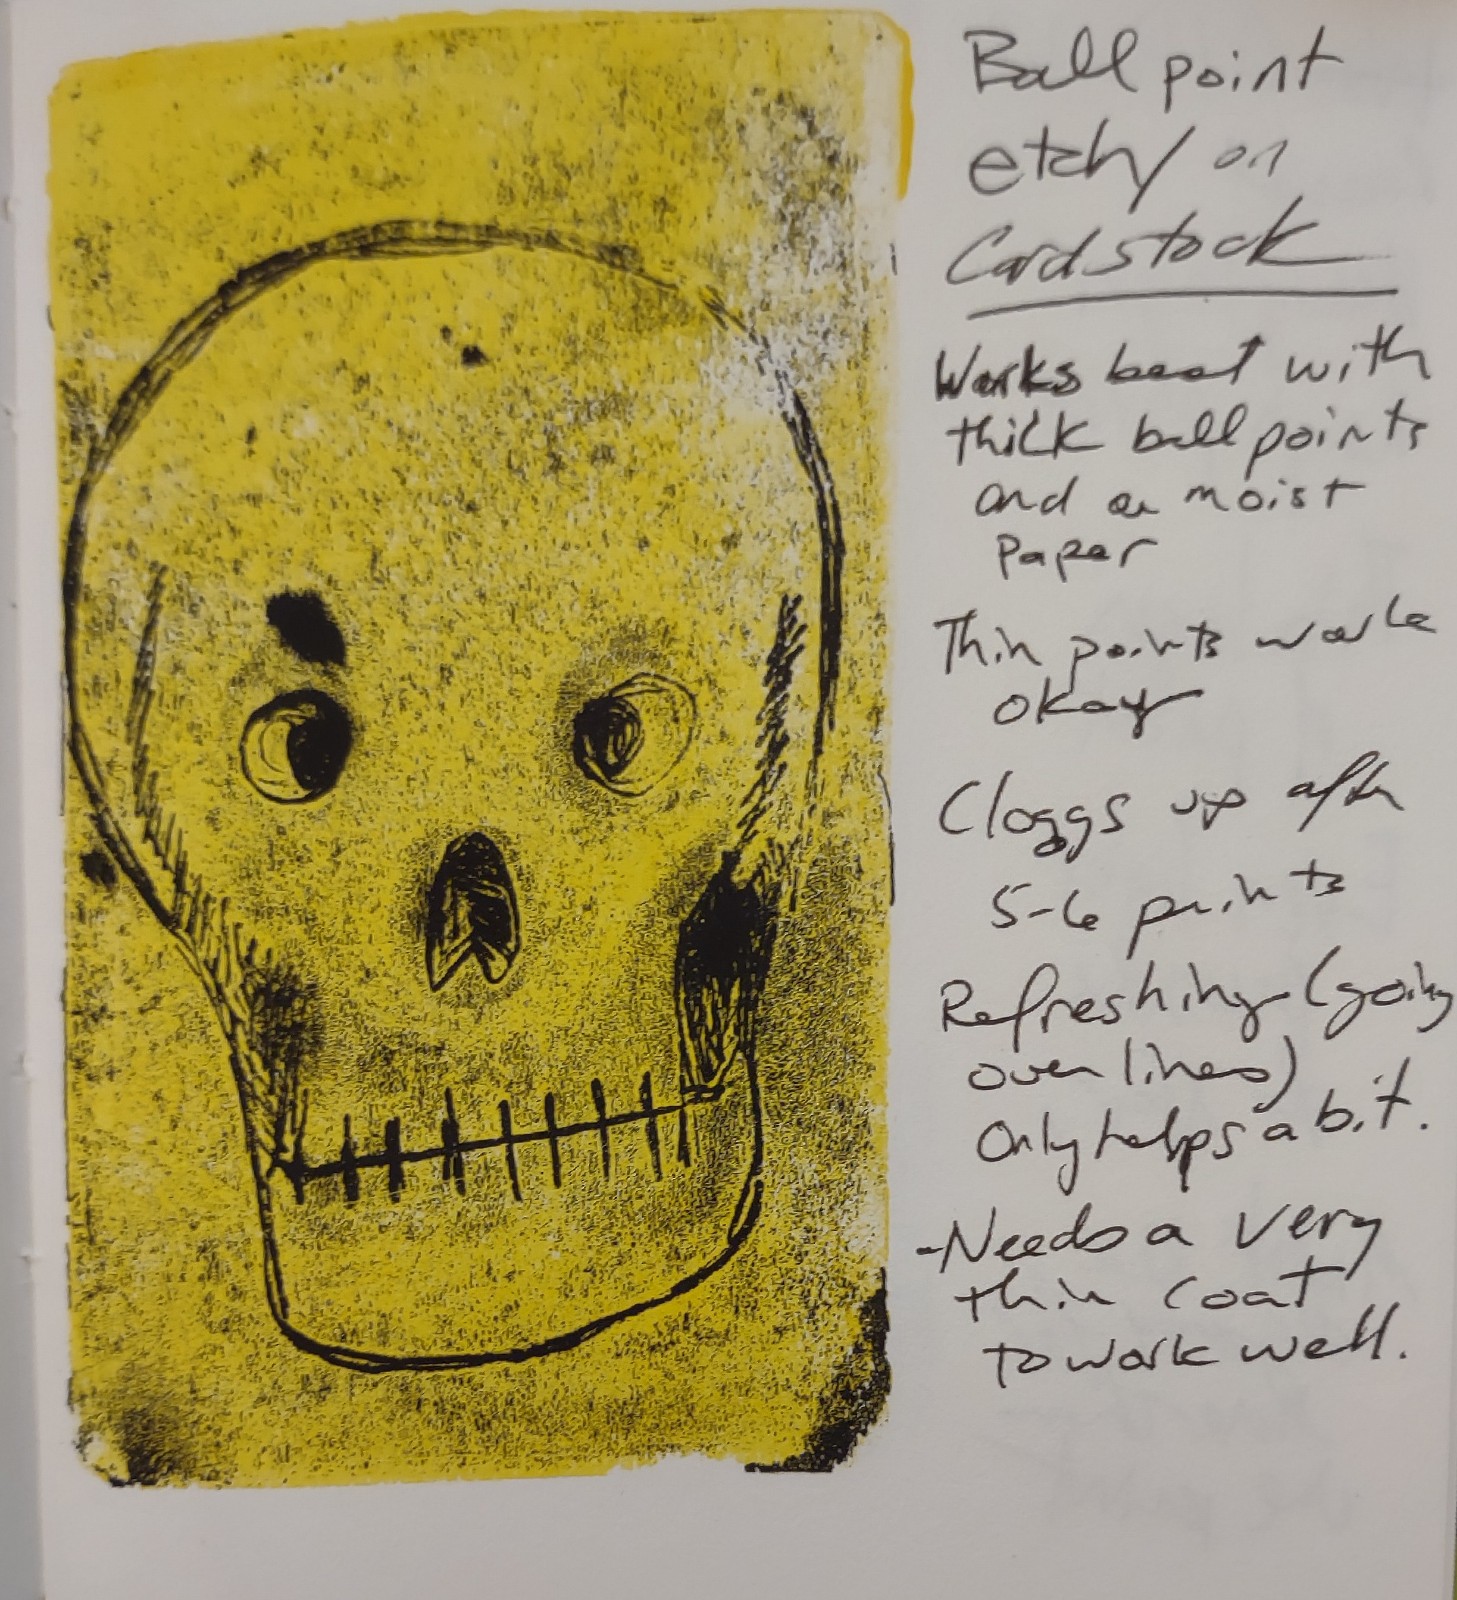 Ball point
etchy on
Cardstock
Works best with
thick ball points
and a moist
Paper
Thin points work
okay
Cloggs up after
5-6 prints
Refreshing (going
over lines)
Only helps a bit.
-Needs a very
thin coat
to work well.